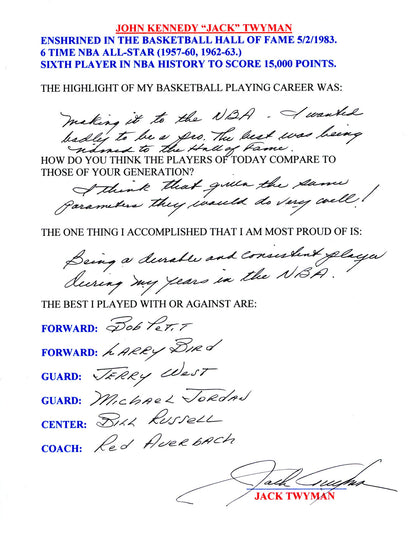 JOHN KENNEDY “JACK” TWYMAN
ENSHRINED IN THE BASKETBALL HALL OF FAME 5/2/1983.
6 TIME NBA ALL-STAR (1957-60, 1962-63.)
SIXTH PLAYER IN NBA HISTORY TO SCORE 15,000 POINTS.
THE HIGHLIGHT OF MY BASKETBALL PLAYING CAREER WAS:
Making it to the NBA. I wanted
badly to be a pro. The best was being
named to the Hall of Fame.
HOW DO YOU THINK THE PLAYERS OF TODAY COMPARE TO
THOSE OF YOUR GENERATION?
I think that given the same
parameters they would do very well!
THE ONE THING I ACCOMPLISHED THAT I AM MOST PROUD OF IS:
Being a durable and consistent player
during my years in the NBA.
THE BEST I PLAYED WITH OR AGAINST ARE:
FORWARD: Bob Petit
FORWARD: LARRY Bird
GUARD: JERRY West
GUARD: MicHAEL JORDAN
CENTER: Bill RUSSELL
COACH: Red AUERBACH
Jack Twyman
JACK TWYMAN